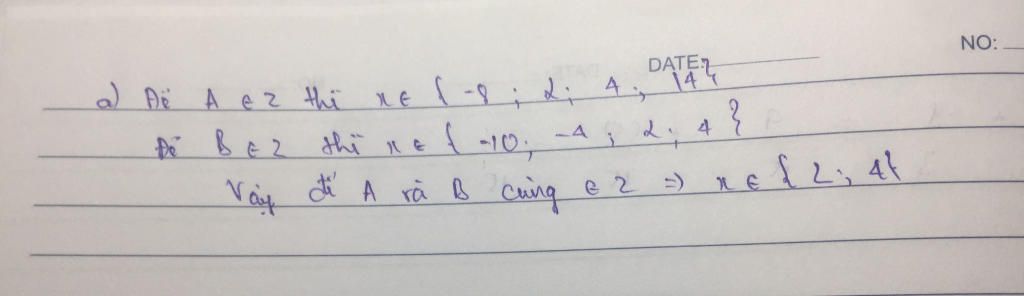 NO:
DATE:
a) Để A ∈ Z thì x ∈ { -8 ; 2 ; 4 ; 14 }
Để B ∈ Z thì x ∈ { -10 ; -4 ; 2 ; 4 }
Vậy để A và B cùng ∈ Z => x ∈ { 2 ; 4 }